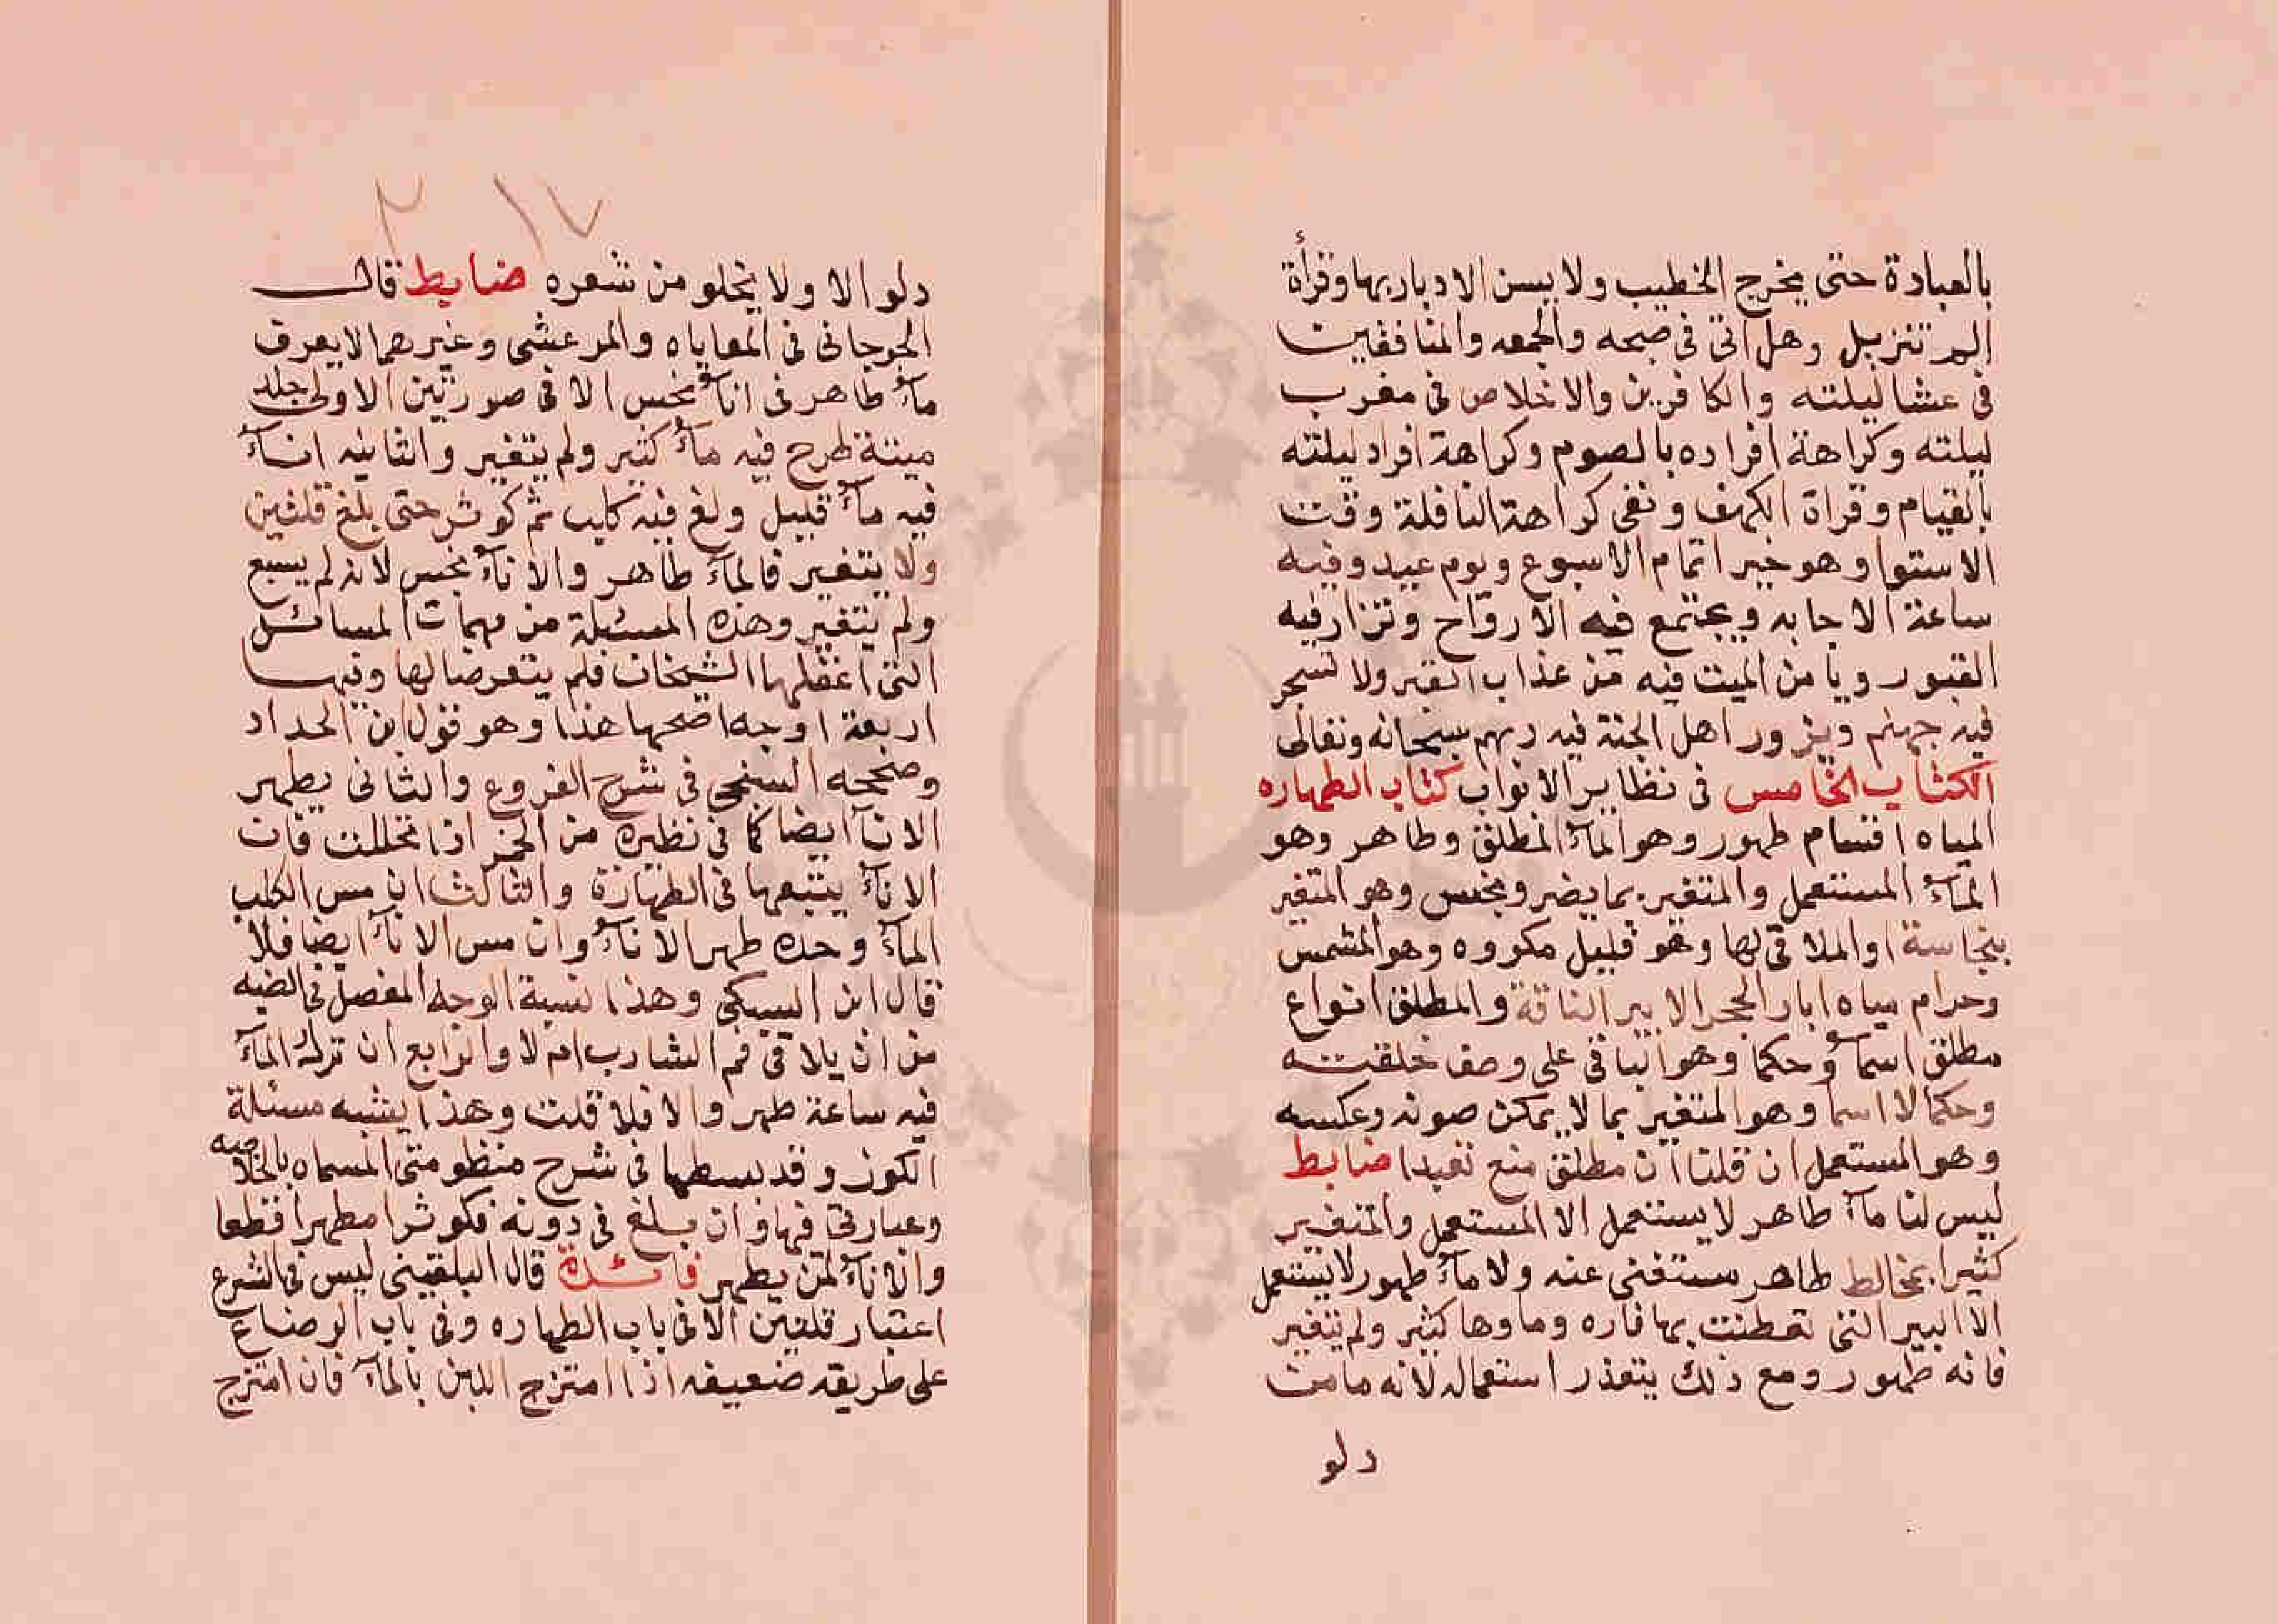 بالعبادة حتى يخرج الخطيب ولا يسن الابراد بها وقرأة
الم تنزيل وهل اتى فى صبحه والجمعه والمنافقين
فى عشا ليلته والكافرين والاخلاص فى مغرب
ليلته وكراهة افراده بالصوم وكراهة افراد ليلته
بالقيام وقراة الكهف ونفى كراهة النافلة وقت
الاستوا وهو خير ايام الاسبوع ويوم عيد وفيه
ساعة الاجابه ويجتمع فيه الارواح وتزار فيه
القبور ويأمن الميت فيه من عذاب القبر ولا تسجر
فيه جهنم ويزور اهل الجنة فيه ربهم سبحانه وتعالى
الكتاب الخامس فى نظاير الابواب كتاب الطهاره
المياه اقسام طهور وهو المآء المطلق وطاهر وهو
المآء المستعمل والمتغير بما يضر ونجس وهو المتغير
بنجاسة او الملاقى لها وهو قليل مكروه وهو المشمس
وحرام مياه ابار الحجر الا بير الناقة والمطلق انواع
مطلق اسما وحكما وهو الباقى على وصف خلقته
وحكما لا اسما وهو المتغير بما لا يمكن صونه وعكسه
وهو المستعمل ان قلنا ان مطلق منع تعبدا ضابط
ليس لنا مآء طاهر لا يستعمل الا المستعمل والمتغير
كثيرا بمخالط طاهر مستغنى عنه ولا مآء طهور لا يستعمل
الا البير التى تمعطت بها فاره وماوها كثير ولم يتغير
فانه طهور ومع ذلك يتعذر استعماله لانه ما من
دلو
٢١٧
دلو الا ولا يخلو من شعره ضابط قال
الجرجانى فى المعاياه والمرعشى وغيرهما لا يعرف
مآء طاهر فى انآء نجس الا فى صورتين الاولى جلد
ميتة طرح فيه مآء كثير ولم يتغير والثانيه انآء
فيه مآء قليل ولغ فيه كلب ثم كوثر حتى بلغ قلتين
ولا يتغير فالمآء طاهر والانآء نجس لانه لم يسبع
ولم يتغير وهذه المسئلة من مهمات المسائل
التى اغفلها الشيخان فلم يتعرضا لها وفيها
اربعة اوجه اصحها هذا وهو قول ابن الحداد
وصححه السنجى فى شرح الفروع والثانى يطهر
الانآء ايضا كما فى نظيره من الخمر اذا تخللت فان
الانآء يتبعها فى الطهارة والثالث ان مس الكلب
المآء وحده طهر الانآء وان مس الانآء ايضا فلا
قال ابن السبكى وهذا نسبة الوجه المفصل فى الضبه
من ان يلاقى فم الشارب ام لا والرابع ان ترك المآء
فيه ساعة طهر والا فلا قلت وهذا يشبه مسئلة
الكوز وقد بسطها فى شرح منظومتى المسماه بالخلاصه
وعبارتى فيها وان بلغ فى دونه فكوثرا مطهرا قطعا
والانآء لن يطهر فائدة قال البلقينى ليس فى الشرع
اعتبار قلتين الا فى باب الطهاره وفى باب الرضاع
على طريقه ضعيفه اذا امتزج اللبن بالمآء فان امتزج